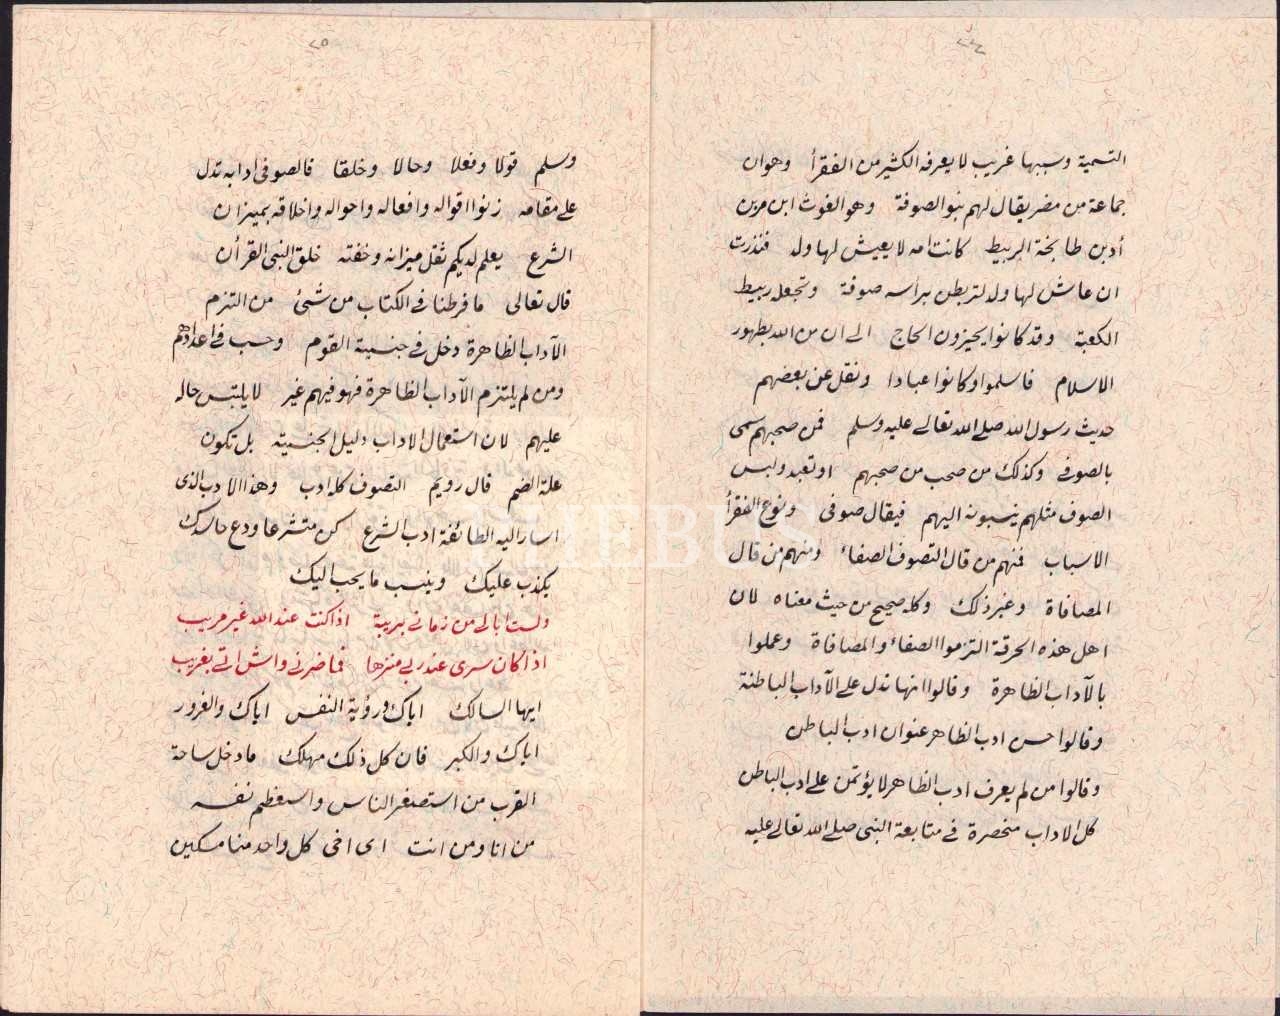 ٢٤
التسمية وسببها غريب لا يعرفه الكثير من الفقرأ وهوان
جماعة من مضر يقال لهم بنو الصوفة وهو الغوث ابن مربن
أدبن طابخة الربيط كانت امه لا يعيش لها ولد فنذرت
ان عاش لها ولد لتربطن برأسه صوفة وتجعله ربيط
الكعبة وقد كانوا يجيزون الحاج الى ان من الله بظهور
الاسلام فاسلموا وكانوا عبادا ونقل عن بعضهم
حديث رسول الله صلى الله تعالى عليه وسلم فمن صحبهم سمى
بالصوفى وكذلك من صحب من صحبهم او تعبد ولبس
الصوف مثلهم ينسبونه اليهم فيقال صوفى ونوع الفقرأ
الاسباب فمنهم من قال التصوف الصفاء ومنهم من قال
المصافاة وغير ذلك وكله صحيح من حيث معناه لان
اهل هذه الحرقة التزموا الصفاء والمصافاة وعملوا
بالآداب الظاهرة وقالوا انها تدل على الآداب الباطنة
وقالوا حسن ادب الظاهر عنوان ادب الباطن
وقالوا من لم يعرف ادب الظاهر لا يؤتمن على ادب الباطن
كل الاداب منحصرة فى متابعة النبى صلى الله تعالى عليه
٢٥
وسلم قولا وفعلا وحالا وخلقا فالصوفى ادابه تدل
على مقامه زنوا اقواله وافعاله واحواله واخلاقه بميزان
الشرع يعلم لديكم ثقل ميزانه وخفته خلق النبى القرأن
قال تعالى ما فرطنا فى الكتاب من شئ من التزم
الآداب الظاهرة دخل فى جنسية القوم وحسب فى اعدادهم
ومن لم يلتزم الآداب الظاهرة فهو فيهم غير لا يلتبس حاله
عليهم لان استعمال الاداب دليل الجنسية بل تكون
علة الضم قال رويم التصوف كله ادب وهذا الادب الذى
اسار اليه الطائفة ادب الشرع كن متشرعا ودع حاسدك
يكذب عليك وينسب ما يحب اليك
ولست ابالى من زمانى بريبة اذا كنت عند الله غير مريب
اذا كان سرى عند ربى منزها فما ضرنى واش اتى بغريب
ايها السالك اياك ورؤية النفس اياك والغرور
اياك والكبر فان كل ذلك مهلك ما دخل ساحة
القرب من استصغر الناس واستعظم نفسه
من انا ومن انت اى اخى كل واحد منا مسكين
PHEBUS